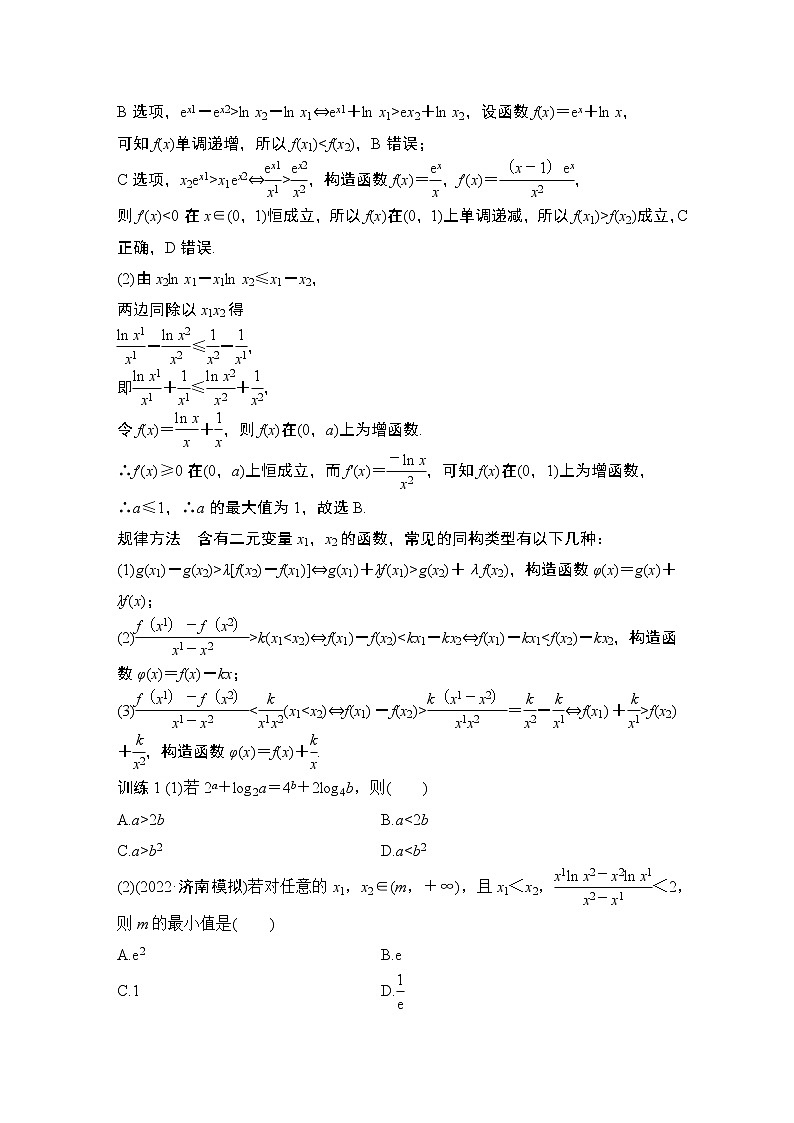 B选项，eˣ¹－eˣ²>ln x₂－ln x₁⇔eˣ¹＋ln x₁>ex₂＋ln x₂，设函数f(x)＝eˣ＋ln x，
可知f(x)单调递增，所以f(x₁)<f(x₂)，B错误；
C选项，x₂eˣ¹>x₁eˣ²⇔\frac{ex1}{x1}>\frac{ex2}{x2}，构造函数f(x)＝\frac{ex}{x}，f′(x)＝\frac{（x－1）ex}{x2}，
则f′(x)<0在x∈(0，1)恒成立，所以f(x)在(0，1)上单调递减，所以f(x₁)>f(x₂)成立，C
正确，D错误.
(2)由x₂ln x₁－x₁ln x₂≤x₁－x₂，
两边同除以x₁x₂得
\frac{ln x1}{x1}－\frac{ln x2}{x2}≤\frac{1}{x2}－\frac{1}{x1}，
即\frac{ln x1}{x1}＋\frac{1}{x1}≤\frac{ln x2}{x2}＋\frac{1}{x2}，
令f(x)＝\frac{ln x}{x}＋\frac{1}{x}，则f(x)在(0，a)上为增函数.
∴f′(x)≥0在(0，a)上恒成立，而f′(x)＝\frac{－ln x}{x2}，可知f(x)在(0，1)上为增函数，
∴a≤1，∴a的最大值为1，故选B.
规律方法　含有二元变量x₁，x₂的函数，常见的同构类型有以下几种：
(1)g(x₁)－g(x₂)>λ[f(x₂)－f(x₁)]⇔g(x₁)＋λf(x₁)>g(x₂)＋λf(x₂)，构造函数φ(x)＝g(x)＋
λf(x)；
(2)\frac{f（x1）－f（x2）}{x1－x2}>k(x₁<x₂)⇔f(x₁)－f(x₂)<kx₁－kx₂⇔f(x₁)－kx₁<f(x₂)－kx₂，构造函
数φ(x)＝f(x)－kx；
(3)\frac{f（x1）－f（x2）}{x1－x2}<\frac{k}{x1x2}(x₁<x₂)⇔f(x₁)－f(x₂)>\frac{k（x1－x2）}{x1x2}＝\frac{k}{x2}－\frac{k}{x1}⇔f(x₁)＋\frac{k}{x1}>f(x₂)
＋\frac{k}{x2}，构造函数φ(x)＝f(x)＋\frac{k}{x}.
训练1 (1)若2ᵃ＋log₂a＝4ᵇ＋2log₄b，则(　　)
A.a>2b　　B.a<2b
C.a>b²　　D.a<b²
(2)(2022·济南模拟)若对任意的x₁，x₂∈(m，＋∞)，且x₁＜x₂，\frac{x1ln x2－x2ln x1}{x2－x1}＜2，
则m的最小值是(　　)
A.e²　　B.e
C.1　　D.\frac{1}{e}